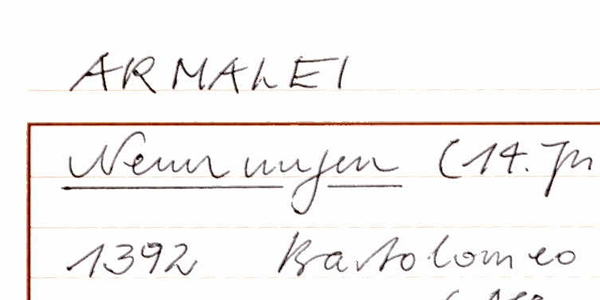 ARMALEI
Nennungen (14. Jh
1392 Bartolomeo